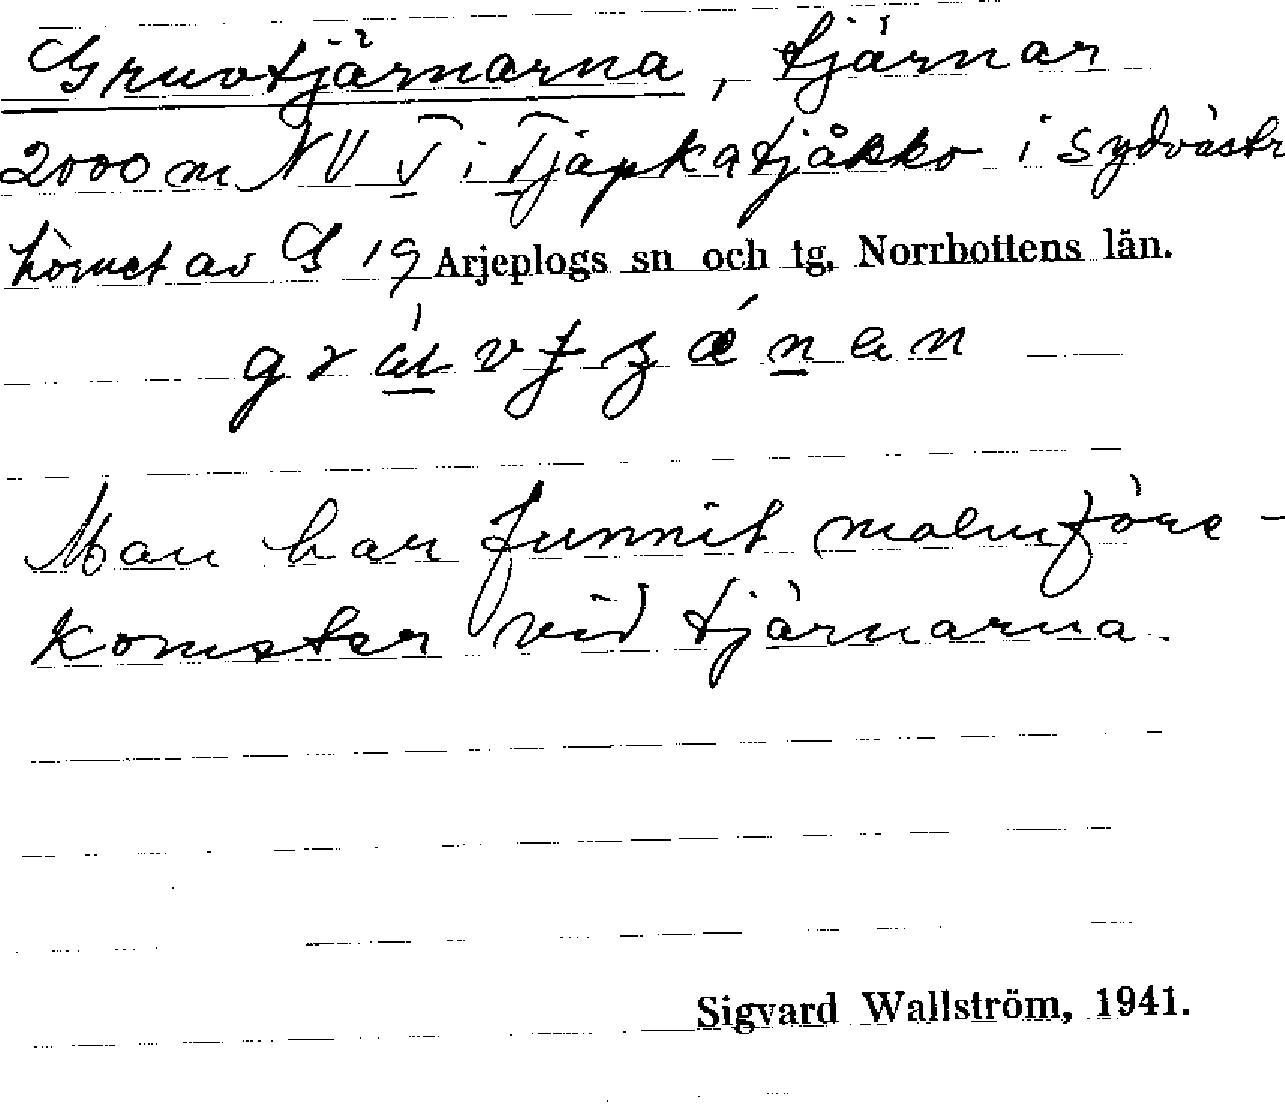 Gruvtjärnarna, tjärnar
2000 m NV T i Tjäpkatjåkko i sydvästr
hörnet av G 19 Arjeplogs sn och tg, Norrbottens län.
Man har funnit malmföre-
komster vid tjärnarna.
Sigvard Wallström, 1941.